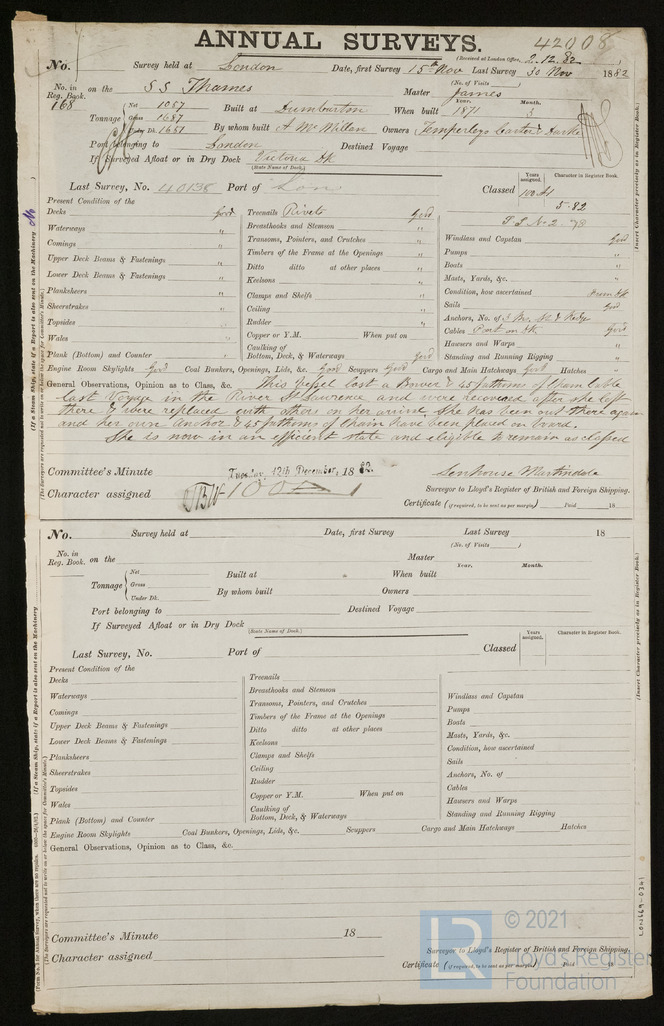 ANNUAL SURVEYS. 42008
(Received at London Office, 2.12.82
No. Survey held at London Date, first Survey 15th Nov Last Survey 30 Nov 1882
(No. of Visits )
No. in Reg. Book. 168 on the SS Thames Master James
Year. Month.
Tonnage Net 1057 Built at Dumbarton When built 1871 3
Gross 1687
Under Dk. 1651 By whom built A McMillan Owners Temperleys Carter &
Port belonging to London Destined Voyage
If Surveyed Afloat or in Dry Dock Victoria Dk
(State Name of Dock.)
Last Survey, No. 40138 Port of Lon Classed 100 A1
Years assigned. Character in Register Book.
5.82
Present Condition of the
Decks Good
Waterways "
Comings "
Upper Deck Beams & Fastenings "
Lower Deck Beams & Fastenings "
Planksheers "
Sheerstrakes "
Topsides "
Wales "
Plank (Bottom) and Counter "
Treenails Rivets Good
Breasthooks and Stemson "
Transoms, Pointers, and Crutches "
Timbers of the Frame at the Openings "
Ditto ditto at other places "
Keelsons "
Clamps and Shelfs "
Ceiling "
Rudder "
Copper or Y.M. When put on
Caulking of Bottom, Deck, & Waterways Good
Windlass and Capstan Good
Pumps "
Boats "
Masts, Yards, &c. "
Condition, how ascertained From Dk
Sails Good
Anchors, No. of 3 Bs, St & Kedge
Cables Part on Dk Good
Hawsers and Warps "
Standing and Running Rigging "
Engine Room Skylights Good Coal Bunkers, Openings, Lids, &c. Good Scuppers Good Cargo and Main Hatchways Good Hatches "
General Observations, Opinion as to Class, &c. This Vessel lost a Bower & 45 fathoms of Chain Cable
last Voyage in the River St Lawrence and were recovered after she left
there & were replaced with others on her arrival. She has been out there again
and her own Anchor & 45 fathoms of Chain have been placed on board.
She is now in an efficient state and eligible to remain as classed
Committee's Minute Tuesday 12th December, 1882.
Senhouse Martindale
Character assigned 100A1
Surveyor to Lloyd's Register of British and Foreign Shipping.
Certificate (if required, to be sent as per margin) Paid 18
No. Survey held at Date, first Survey Last Survey 18
(No. of Visits )
No. in Reg. Book. on the Master
Year. Month.
Tonnage Net Built at When built
Gross
Under Dk. By whom built Owners
Port belonging to Destined Voyage
If Surveyed Afloat or in Dry Dock
(State Name of Dock.)
Last Survey, No. Port of Classed
Years assigned. Character in Register Book.
Present Condition of the
Decks
Waterways
Comings
Upper Deck Beams & Fastenings
Lower Deck Beams & Fastenings
Planksheers
Sheerstrakes
Topsides
Wales
Plank (Bottom) and Counter
Treenails
Breasthooks and Stemson
Transoms, Pointers, and Crutches
Timbers of the Frame at the Openings
Ditto ditto at other places
Keelsons
Clamps and Shelfs
Ceiling
Rudder
Copper or Y.M. When put on
Caulking of Bottom, Deck, & Waterways
Windlass and Capstan
Pumps
Boats
Masts, Yards, &c.
Condition, how ascertained
Sails
Anchors, No. of
Cables
Hawsers and Warps
Standing and Running Rigging
Engine Room Skylights Coal Bunkers, Openings, Lids, &c. Scuppers Cargo and Main Hatchways Hatches
General Observations, Opinion as to Class, &c.
Committee's Minute 18
Character assigned
Surveyor to Lloyd's Register of British and Foreign Shipping.
Certificate (if required, to be sent as per margin) Paid 18
LR © 2021
Lloyd's Register
Foundation
(Insert Character precisely as in Register Book.)
(If a Steam Ship, state if a Report is also sent on the Machinery
(Insert Character precisely as in Register Book.)